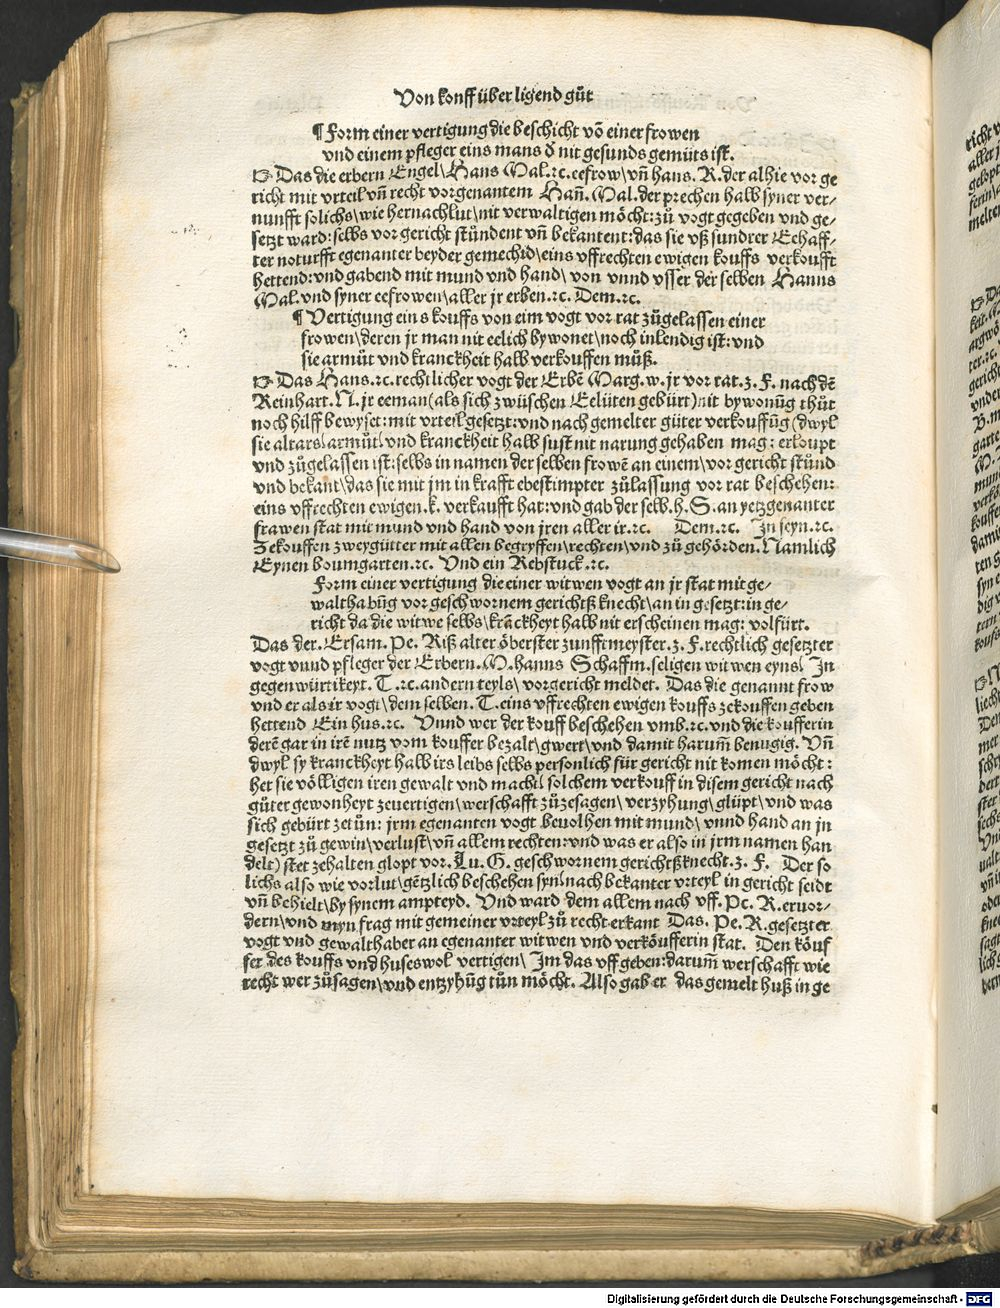 Von konff über ligend gůt
¶ Form einer vertigung die beschicht võ einer frowen
vnd einem pfleger eins mans ð nit gesunds gemüts ist.
Das die erbern Engel\ Hans Mal.ꝛc.eefrow\ vñ hans. R. der alhie vor ge
richt mit vrteil vñ recht vorgenantem Hañ. Mal. der prechen halb syner ver-
nunfft solichs\ wie hernachlut\ nit verwaltigen möcht: zů vogt gegeben vnd ge-
setzt ward: selbs vor gericht stůndent vñ bekantent: das sie vß sundrer Eehaff-
ter noturfft egenanter beyder gemechid\ eins vffrechten ewigen kouffs verkoufft
hettend: vnd gabend mit mund vnd hand\ von vnnd vsser der selben Hanns
Mal. vnd syner eefrowen\ aller jr erben.ꝛc. Dem.ꝛc.
¶ Vertigung eins kouffs von eim vogt vor rat zůgelassen einer
frowen\ deren jr man nit eelich bywonet\ noch inlendig ist: vnd
sie armůt vnd kranckheit halb verkouffen můß.
Das Hans.ꝛc. rechtlicher vogt der Erbẽ Marg. w. jr vor rat. z. F. nach dẽ
Reinhart. N. jr eeman (als sich zwüschen Eelüten gebürt) nit bywonũg thůt
noch hilff bewyset: mit vrteil gesetzt: vnd nach gemelter gůter verkouffũg (dwyl
sie altars\ armůt\ vnd kranckheit halb sust nit narung gehaben mag: erloupt
vnd zůgelassen ist: selbs in namen der selben frowẽ an einem\ vor gericht stůnd
vnd bekant\ das sie mit jm in krafft ebestimpter zůlassung vor rat beschehen:
eins vffrechten ewigen. k. verkaufft hat: vnd gab der selb. h. S. an yetzgenanter
frawen stat mit mund vnd hand von jren aller ir.ꝛc. Dem.ꝛc. In seyn.ꝛc.
Zekouffen zwey gütter mit allen begryffen\ rechten\ vnd zů gehörden. Namlich
Eynen boumgarten.ꝛc. Vnd ein Rebstuck.ꝛc.
Form einer vertigung die einer witwen vogt an jr stat mit ge-
walthabũg vor geschwornem gerichtß knecht\ an in gesetzt: in ge-
richt da die witwe selbs\ krãckheyt halb nit erscheinen mag: volfürt.
Das der. Ersam. Pe. Riß alter öberster zunfftmeyster. z. F. rechtlich gesetzter
vogt vnnd pfleger der Erbern. M. hanns Schaffm. seligen witwen eyns\ In
gegenwürtikeyt. T.ꝛc. andern teyls\ vor gericht meldet. Das die genannt frow
vnd er als ir vogt\ dem selben. T. eins vffrechten ewigen kouffs zekouffen geben
hettend Ein hus.ꝛc. Vnnd wer der kouff beschehen vmb.ꝛc. vnd die koufferin
derẽ gar in irẽ nutz vom kouffer bezalt\ gwert\ vnd damit harum̃ benugig. Vñ
dwyl sy kranckheyt halb irs leibs selbs persönlich für gericht nit komen möcht:
het sie völligen iren gewalt vnd macht\ solchem verkouff in disem gericht nach
gůter gewonheyt zeuertigen\ werschafft zůzesagen\ verzyhung\ glüpt\ vnd was
sich gebürt zetůn: jrm egenanten vogt beuolhen mit mund\ vnnd hand an jn
gesetzt zů gewin\ verlust\ vñ allem rechten: vnd was er also in jrm namen han
delt) stet zehalten glopt vor. Lu. G. geschwornem gerichtßknecht. z. F. Der so
lichs also wie vorlut\ gẽtzlich beschehen syn\ nach bekanter vrteyl in gericht seidt
vñ behielt\ by synem ampteyd. Vnd ward dem allem nach vff. Pe. R. eruor-
dern\ vnd myn frag mit gemeiner vrteyl zů recht erkant Das. Pe. R. gesetzter
vogt vnd gewalthaber an egenanter witwen vnd verköufferin stat. Den köuf
fer des kouffs vnd huseswol vertigen\ Im das vff geben: darum̃ werschafft wie
recht wer zůsagen\ vnd entzyhũg tůn möcht. Also gab er das gemelt huß in ge
Digitalisierung gefördert durch die Deutsche Forschungsgemeinschaft - DFG